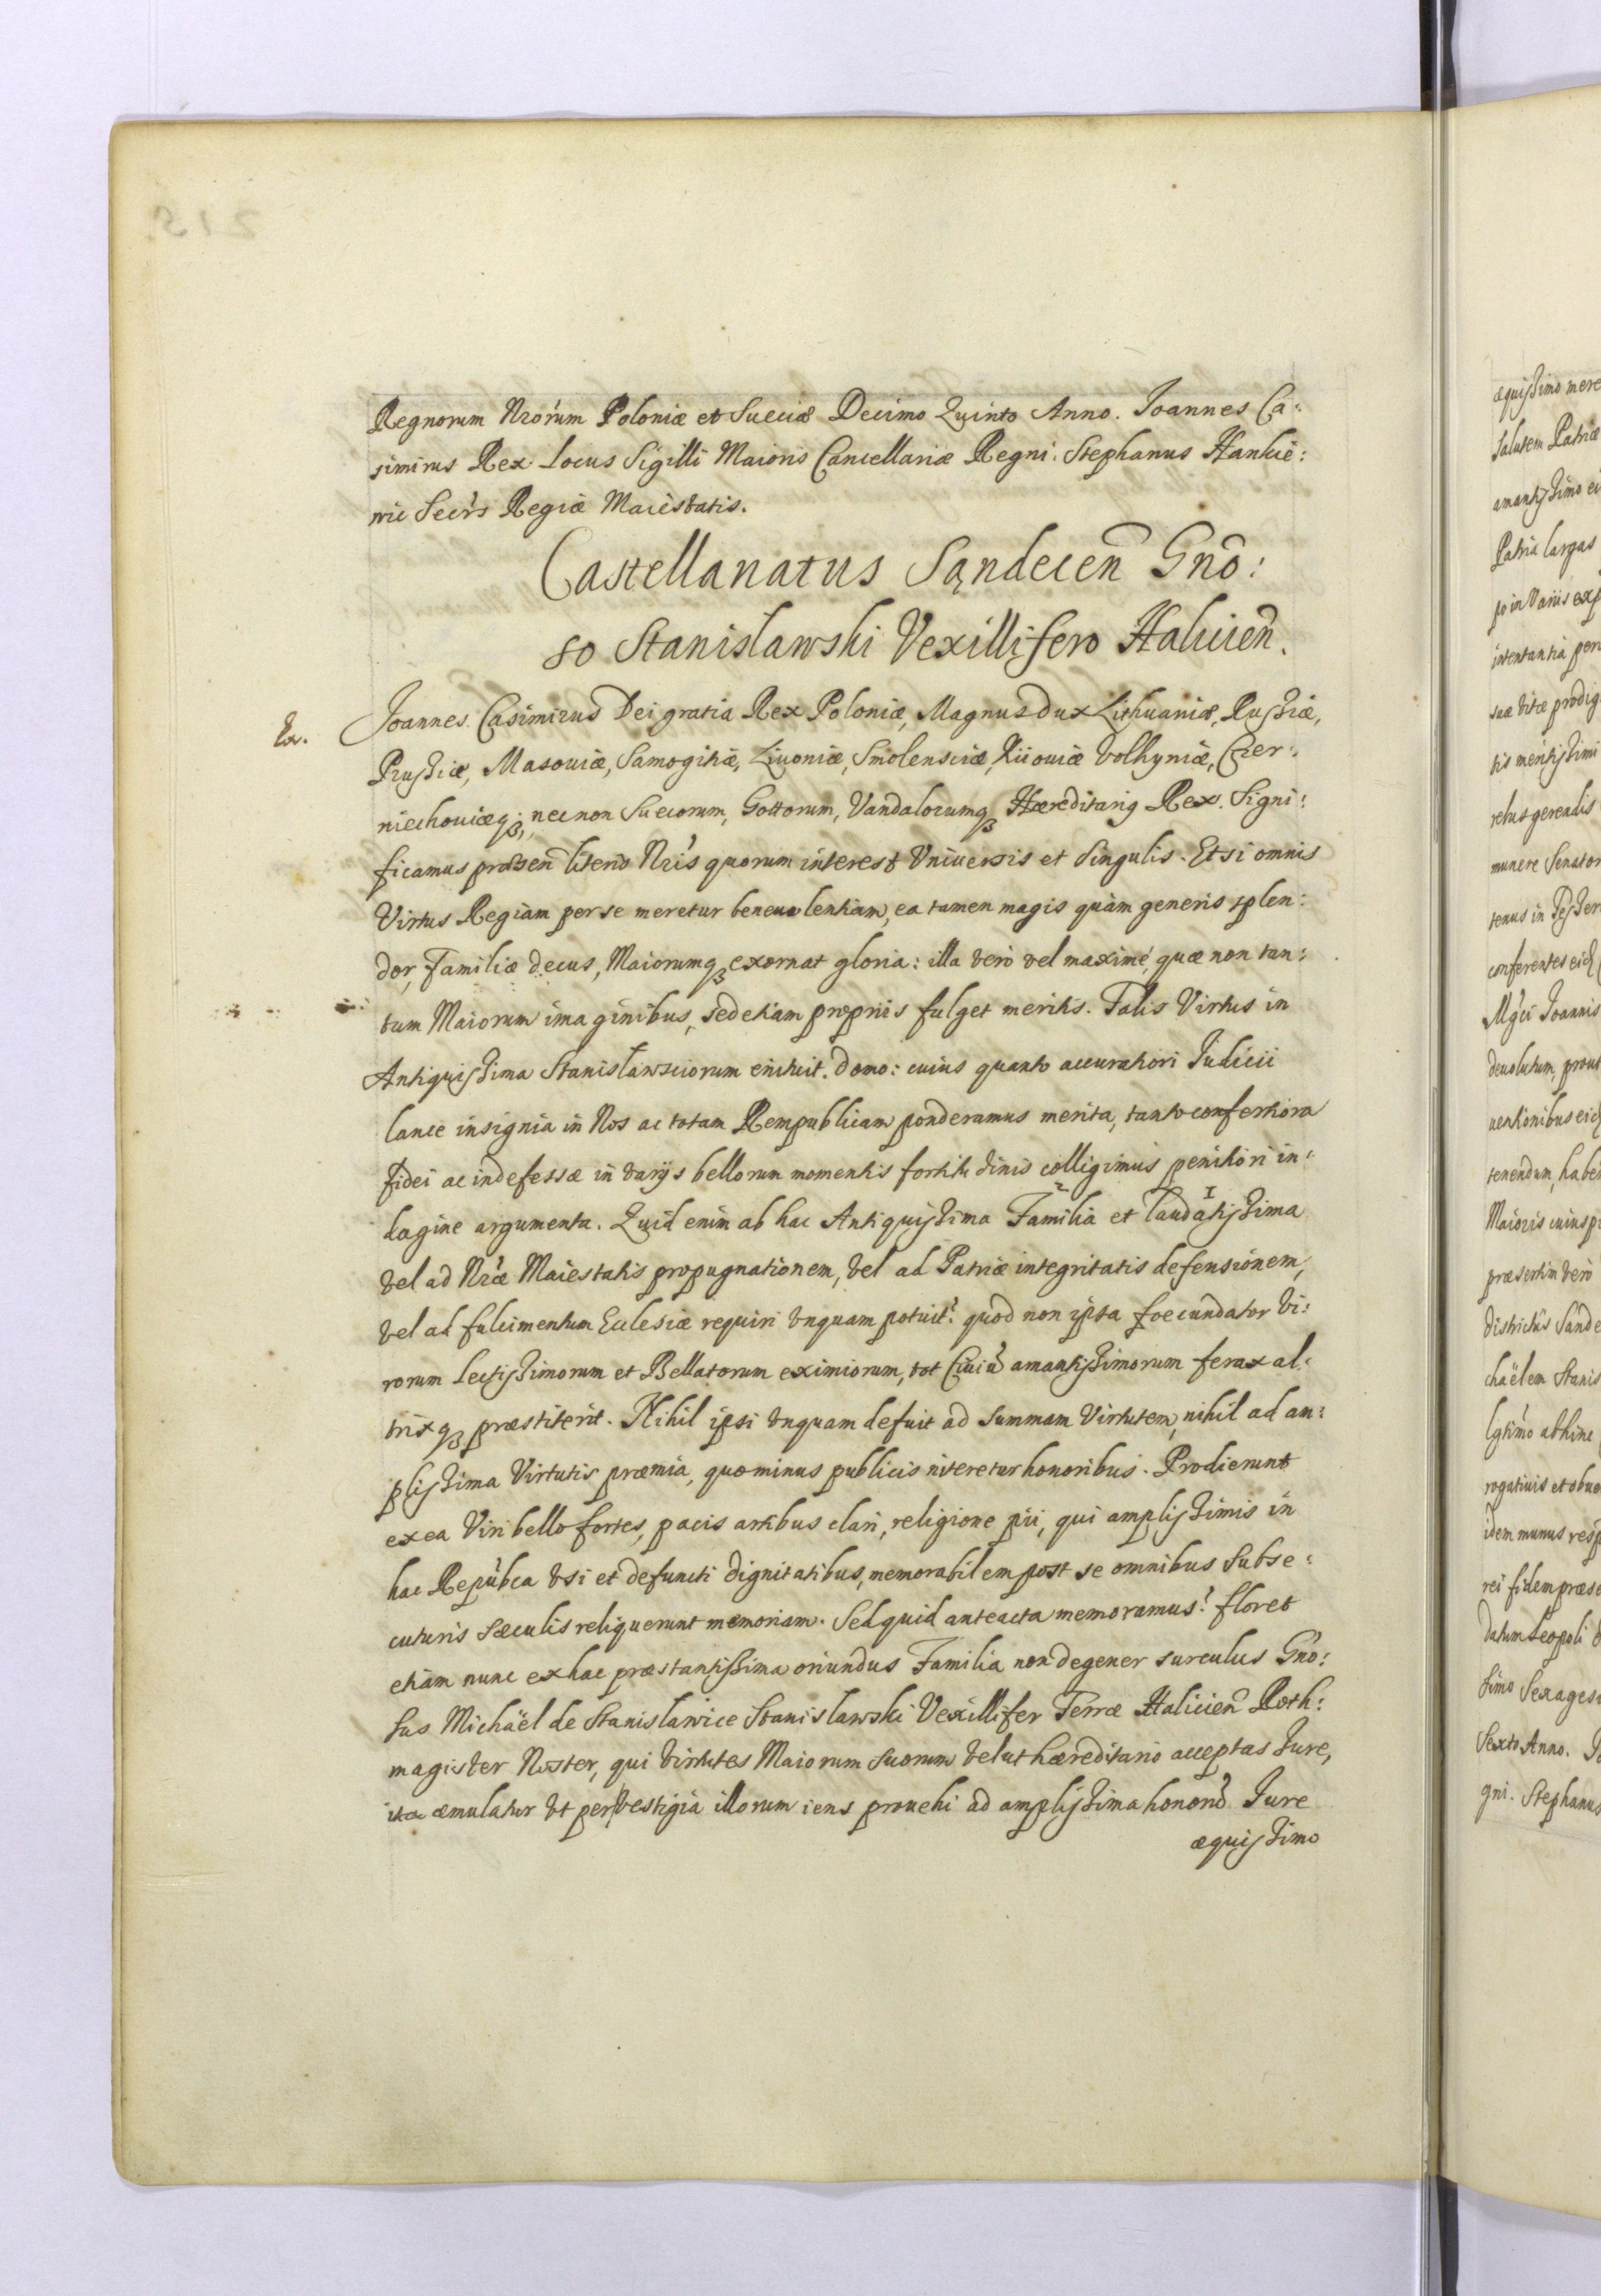 Regnorum Nrorum Poloniæ et Sueciæ Decimo Quinto Anno. Joannes Ca:
simirus Rex Locus Sigilli Maioris Cancellariæ Regni. Stephanus Hankie:
wic Secrs Regiæ Maiestatis.
Castellanatus Sąndecen Gno:
so Stanislawski Vexillifero Halicien.
Ex.
Joannes Casimirus Dei gratia Rex Poloniæ, Magnus Dux Lithuaniæ, Russiæ,
Prussiæ, Masouiæ, Samogitiæ, Liuoniæ, Smolensciæ, Kiiouiæ Volhyniæ, Czer:
niechouiæq; nec non Suecorum, Gottorum, Vandalorumq Hæreditarig Rex. Signi:
ficamus præsen literis Nris quorum interest Vniuersis et Singulis. Etsi omnis
Virtus Regiam per se meretur beneuolentiam, ea tamen magis quàm generis splen:
dor, Familiæ decus, Maiorumq exornat gloria: illa verò vel maximé, quæ non tan:
tum Maiorum imaginibus, sed etiam propriis fulget meritis. Talis Virtus in
Antiquissima Stanislawsciorum enituit. Domo: cuius quanto accuratiori Judicii
lance insignia in Nos ac totam Rempublicam ponderamus merita, tanto confertiora
fidei ac indefessæ in varijs bellorum momentis fortitudinis colligimus penitiori in:
dagine argumenta. Quid enim ab hac Antiquissima 2 Familia et 1 laudatissima
vel ad Nræ Maiestatis propugnationem, vel ad Patriæ integritatis defensionem,
vel ad fulcimentum Ecclesiæ requiri vnquam potuit? quod non ipsa foecundator Vi:
rorum Lectissimorum et Bellatorum eximiorum, tot Ciuiũ amantissimorum ferax al:
trixq præstiterit. Nihil ipsi vnquam defuit ad summam Virtutem, nihil ad am:
plissima Virtutis præmia, quominus publicis niteretur honoribus. Prodierunt
ex ea Viri bello fortes, pacis artibus clari, religione pii, qui amplissimis in
hac Repubca vsi et defuncti dignitatibus, memorabilem post se omnibus subse:
cuturis sæculis reliquerunt memoriam. Sed quid anteacta memoramus? floret
etiam nunc ex hac præstantissima oriundus Familia non degener surculus Gno:
sus Michaël de Stanislawice Stanislawski Vexillifer Terræ Halicien Roth:
magister Noster, qui virtutes Maiorum suorum velut hæreditario acceptas Jure,
ita æmulatur vt per vestigia illorum iens prouehi ad amplissima honorũ Jure
æquissimo